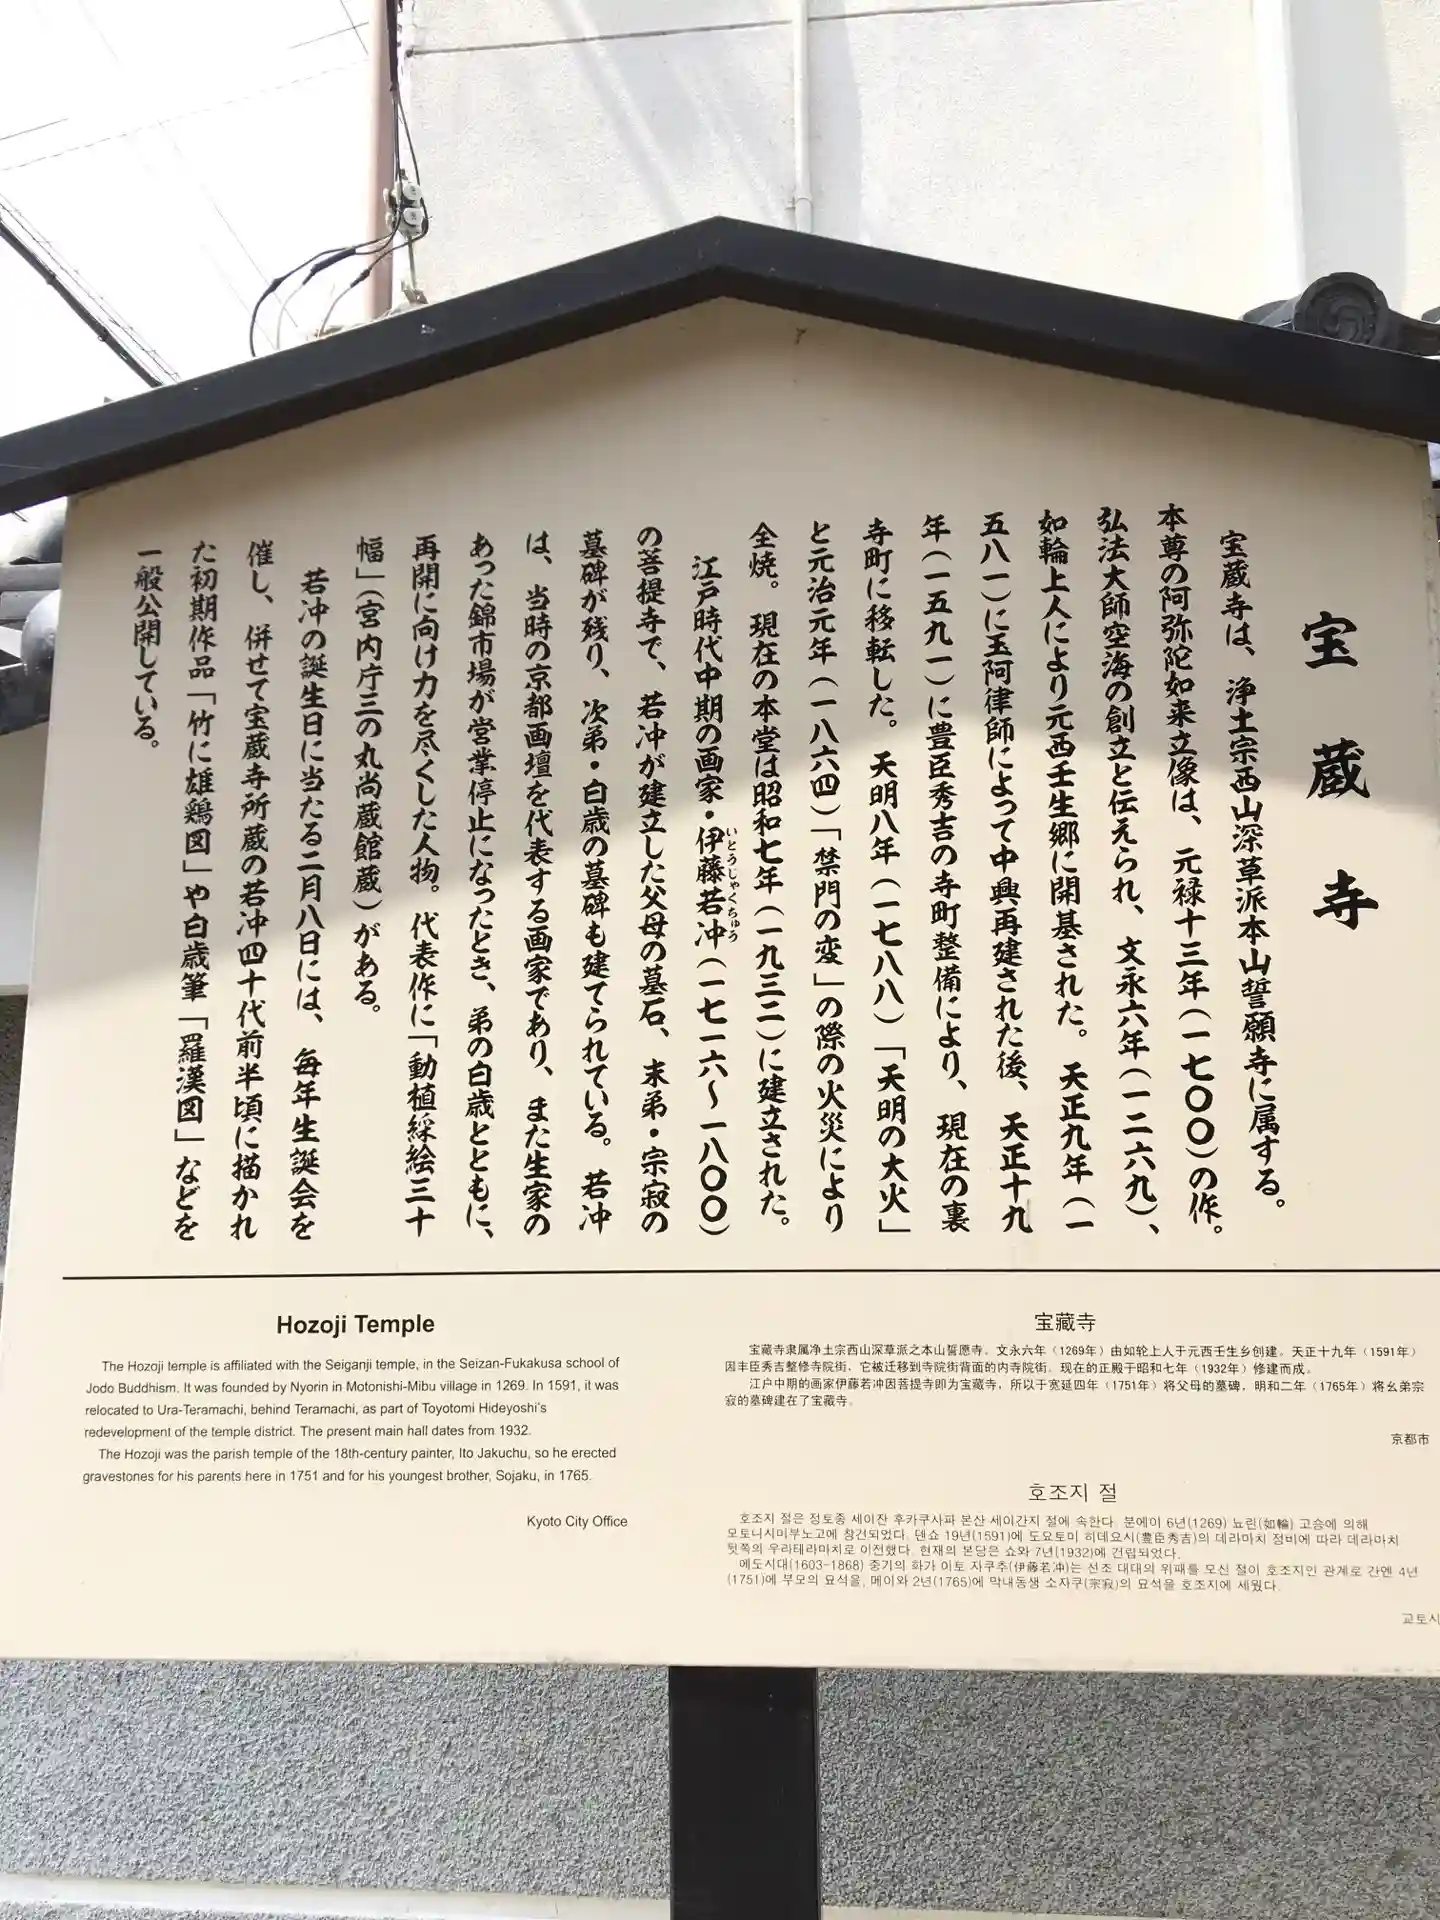 宝蔵寺
宝蔵寺は、浄土宗西山深草派本山誓願寺に属する。
本尊の阿弥陀如来立像は、元禄十三年（一七〇〇）の作。
弘法大師空海の創立と伝えられ、文永六年（一二六九）、
如輪上人により元西壬生郷に開基された。天正九年（一
五八一）に玉阿律師によって中興再建された後、天正十九
年（一五九一）に豊臣秀吉の寺町整備により、現在の裏
寺町に移転した。天明八年（一七八八）「天明の大火」
と元治元年（一八六四）「禁門の変」の際の火災により
全焼。現在の本堂は昭和七年（一九三二）に建立された。
江戸時代中期の画家・伊藤若冲（一七一六～一八〇〇）
いとうじゃくちゅう
の菩提寺で、若冲が建立した父母の墓石、末弟・宗寂の
墓碑が残り、次弟・白歳の墓碑も建てられている。若冲
は、当時の京都画壇を代表する画家であり、また生家の
あった錦市場が営業停止になったとき、弟の白歳とともに、
再開に向け力を尽くした人物。代表作に「動植綵絵三十
幅」（宮内庁三の丸尚蔵館蔵）がある。
若冲の誕生日に当たる二月八日には、毎年生誕会を
催し、併せて宝蔵寺所蔵の若冲四十代前半頃に描かれ
た初期作品「竹に雄鶏図」や白歳筆「羅漢図」などを
一般公開している。
Hozoji Temple
The Hozoji temple is affiliated with the Seiganji temple, in the Seizan-Fukakusa school of
Jodo Buddhism. It was founded by Nyorin in Motonishi-Mibu village in 1269. In 1591, it was
relocated to Ura-Teramachi, behind Teramachi, as part of Toyotomi Hideyoshi's
redevelopment of the temple district. The present main hall dates from 1932.
The Hozoji was the parish temple of the 18th-century painter, Ito Jakuchu, so he erected
gravestones for his parents here in 1751 and for his youngest brother, Sojaku, in 1765.
Kyoto City Office
宝藏寺
宝藏寺隶属净土宗西山深草派之本山誓愿寺。文永六年（1269年）由如轮上人于元西壬生乡创建。天正十九年（1591年）
因丰臣秀吉整修寺院街，它被迁移到寺院街背面的内寺院街。现在的正殿于昭和七年（1932年）修建而成。
江户中期的画家伊藤若冲因菩提寺即为宝藏寺，所以于宽延四年（1751年）将父母的墓碑，明和二年（1765年）将幺弟宗
寂的墓碑建在了宝藏寺。
京都市
호조지 절
호조지 절은 정토종 세이잔 후카쿠사파 본산 세이간지 절에 속한다. 분에이 6년(1269) 뇨린(如輪) 고승에 의해
모토니시미부노고에 창건되었다. 덴쇼 19년(1591)에 도요토미 히데요시(豊臣秀吉)의 데라마치 정비에 따라 데라마치
뒷쪽의 우라테라마치로 이전했다. 현재의 본당은 쇼와 7년(1932)에 건립되었다.
에도시대(1603-1868) 중기의 화가 이토 자쿠추(伊藤若冲)는 선조 대대의 위패를 모신 절이 호조지인 관계로 간엔 4년
(1751)에 부모의 묘석을, 메이와 2년(1765)에 막내동생 소자쿠(宗寂)의 묘석을 호조지에 세웠다.
교토시